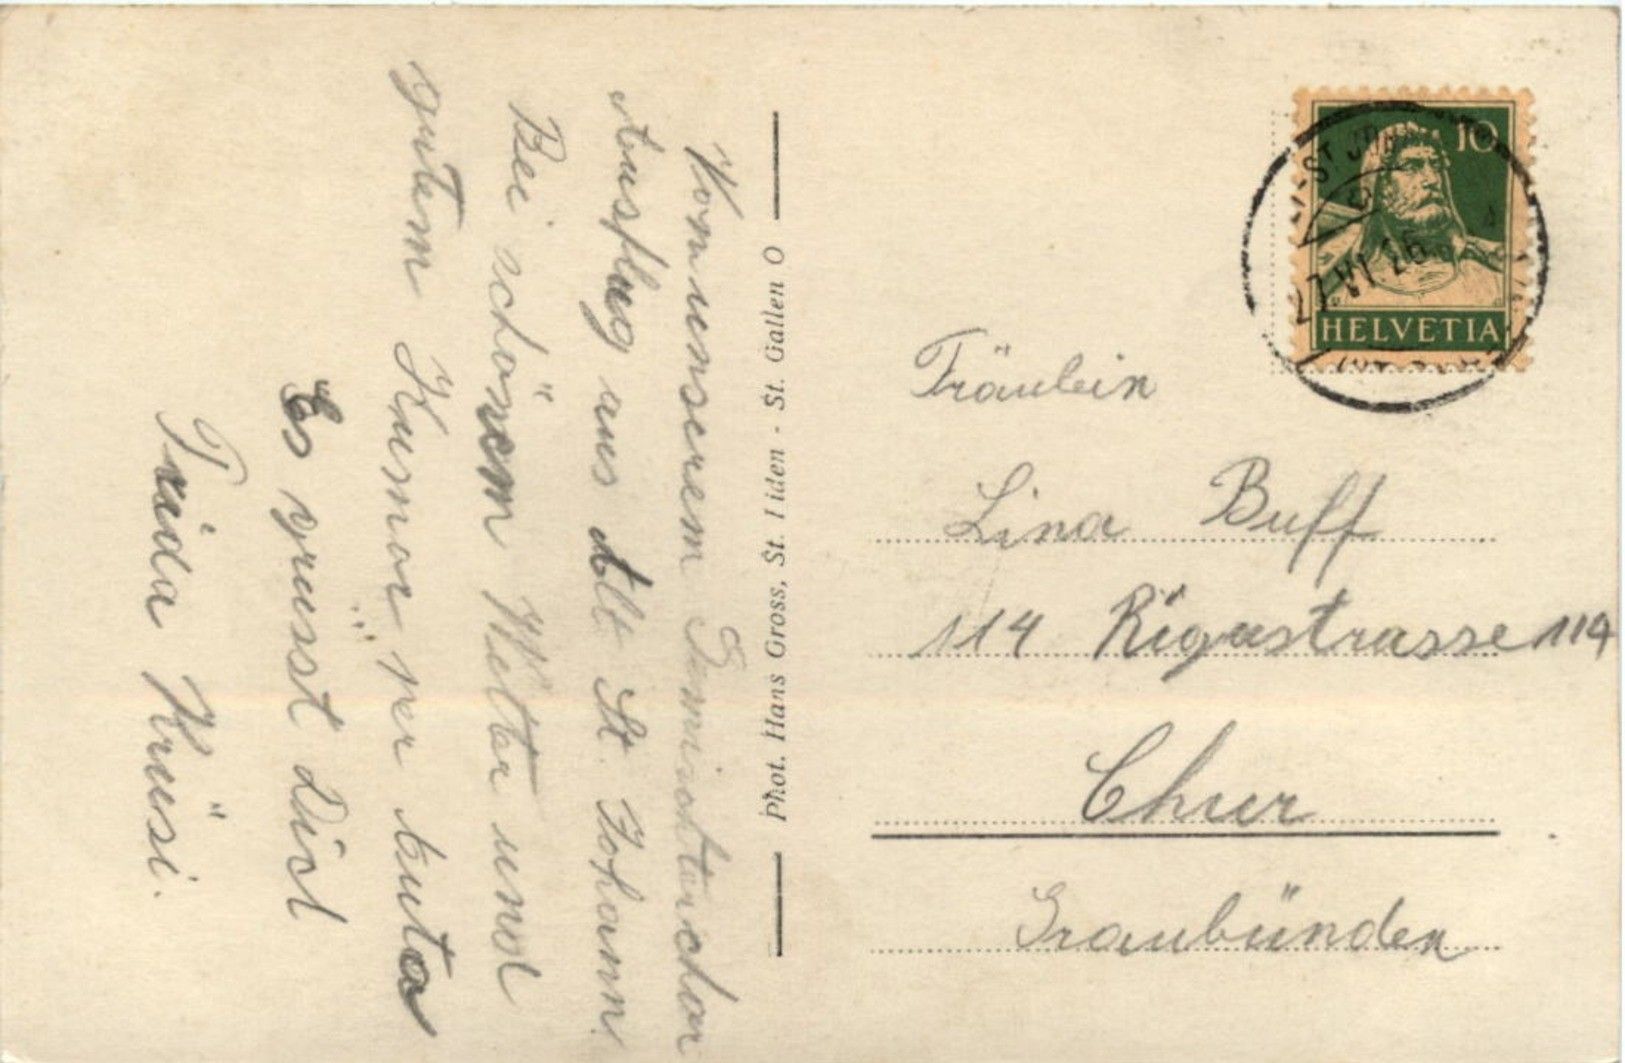 Von unserem Gemischterchor
Ausflug aus Alt St. Johann.
Bei schönem Wetter und
gutem Humor per Auto
Es grüsst Dich
Frida Krüsi.
Phot. Hans Gross, St. Fiden - St. Gallen O
10
HELVETIA
27.VI.26
Fräulein
Lina Buff
114 Rigastrasse 114
Chur
Graubünden